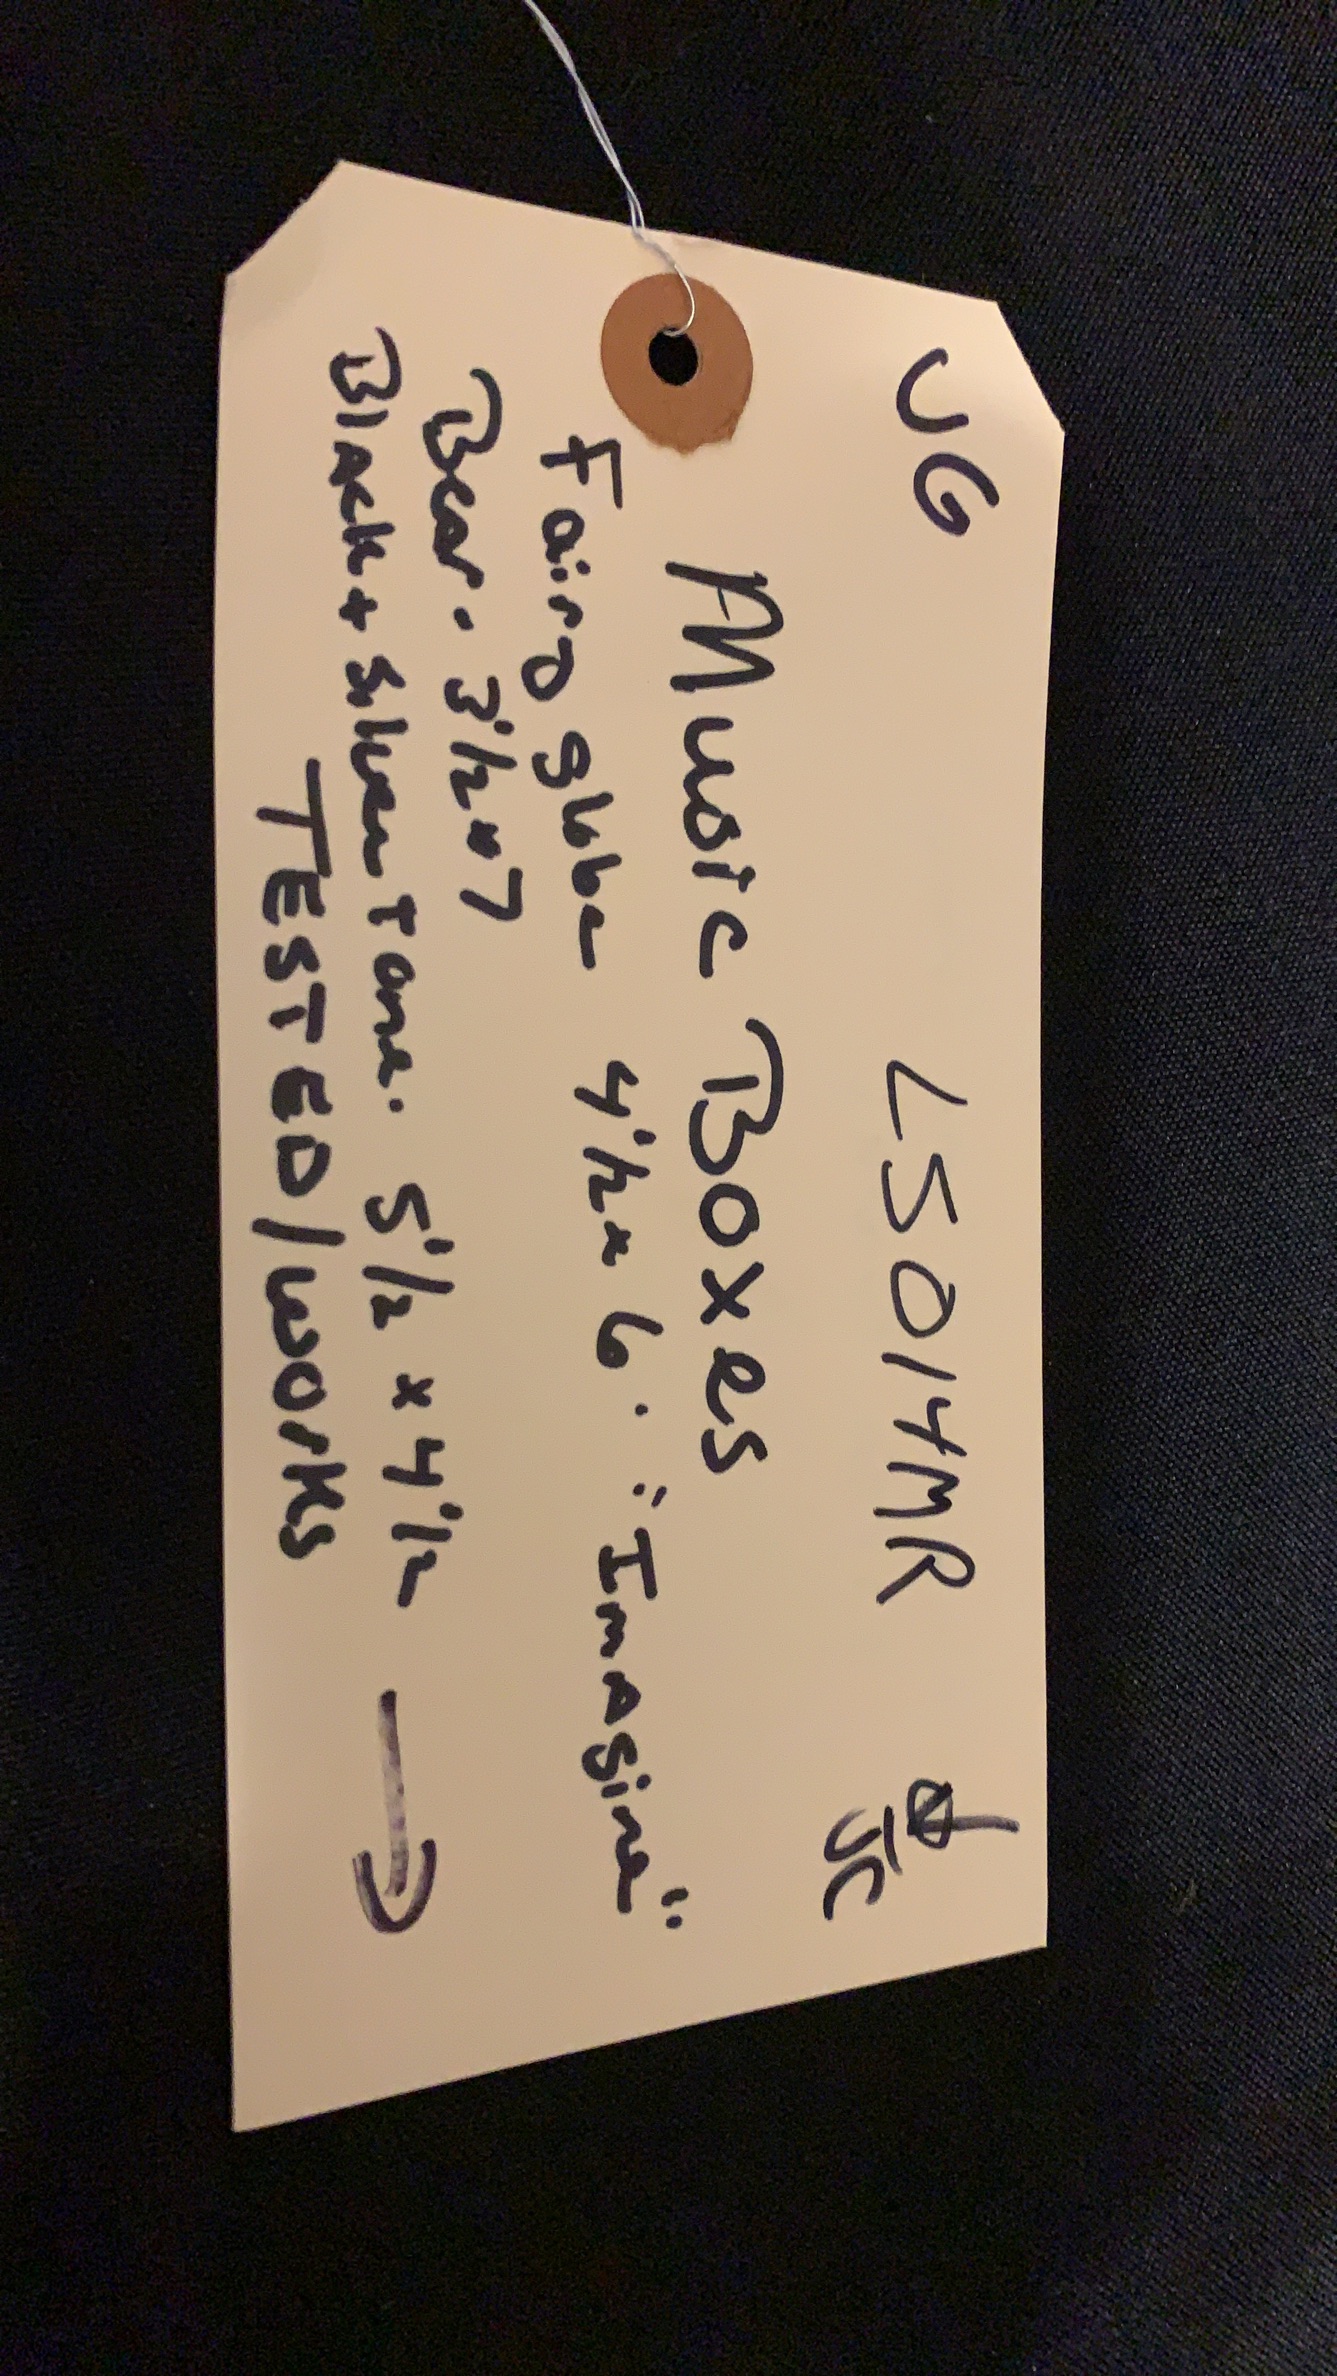 VG LSO14MR
JC
Music Boxes
Fairy globe 4 1/2 x 6. "Imagine"
Bear. 3 1/2 x 7
Black + Silver Tone. 5 1/2 x 4 1/2 →
TESTED/works